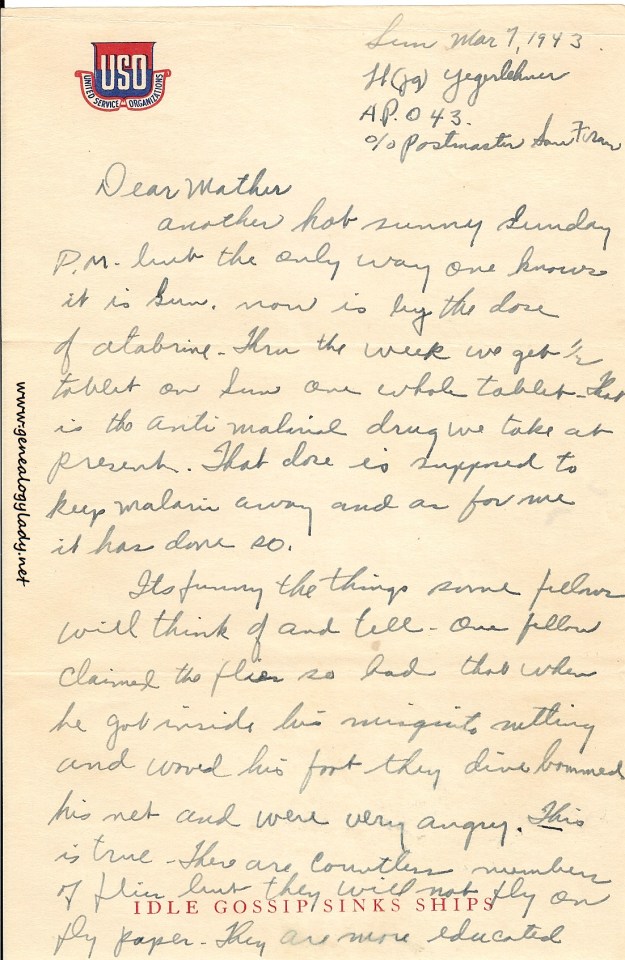 USO
UNITED SERVICE ORGANIZATIONS
Sun Mar 7, 1943.
Lt (jg) Yegerlehner
A.P.O 43.
c/o Postmaster San Fran
Dear Mother
another hot sunny Sunday
P.M. but the only way one knows
it is Sun. now is by the dose
of atabrine - Thru the week we get 1/2
tablet on Sun one whole tablet - That
is the anti malarial drug we take at
present. That dose is supposed to
keep malaria away and as for me
it has done so.
Its funny the things some fellows
will think of and tell - One fellow
claimed the flies so bad that when
he got inside his misquito netting
and waved his foot they dive bommed
his net and were very angry. This
is true - There are countless numbers
of flies but they will not fly on
IDLE GOSSIP SINKS SHIPS
fly paper - They are more educated
www.genealogylady.net